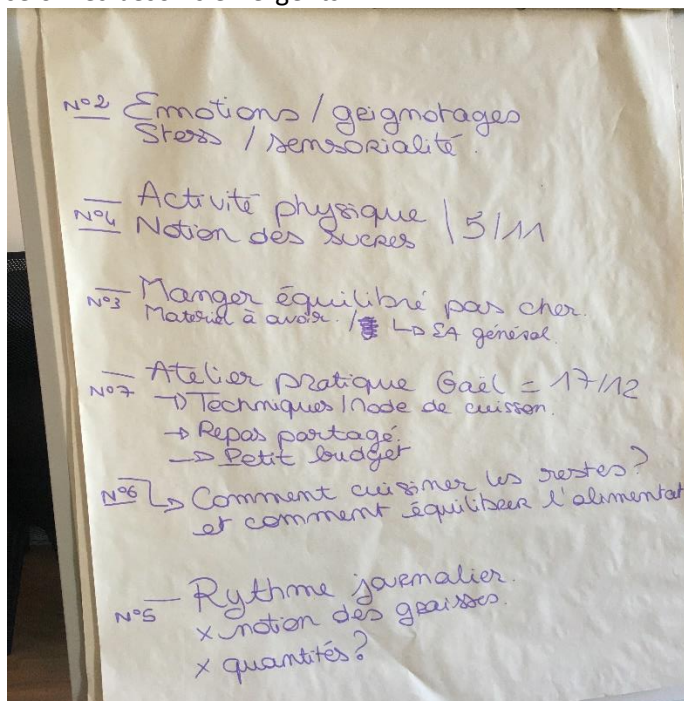 N°2 Emotions / geignotages
Stess / sensorialité.
— Activité physique | 5/11
N°4 Notion des sucres
— Manger équilibré pas cher.
N°3 Materiel à avoir. / ↳ EA général.
— Atelier pratique Gaël = 17/12
N°7 → Techniques / Mode de cuisson.
→ Repas partagé.
→ Petit budget
N°6 ↳ Comment cuisiner les restes?
et comment équilibrer l'alimentat
— Rythme journalier.
N°5 x notion des graisses.
x quantités?